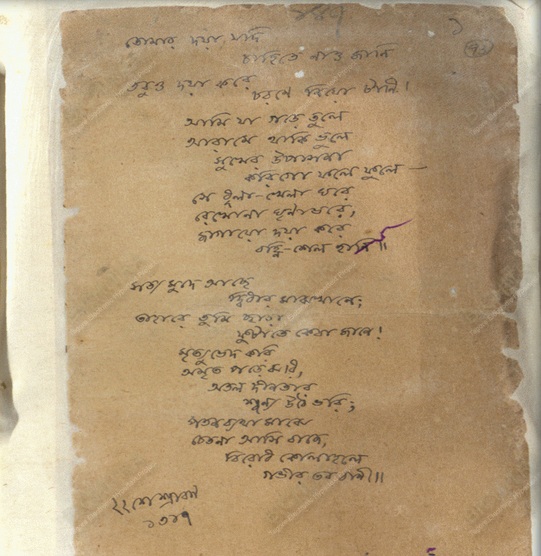 তোমার দয়া যদি
চাহিতে নাও জানি
তবুও দয়া করে
চরণে নিয়ো টানি।
আমি যা গড়ে তুলে
আরামে থাকি ভুলে
সুখের উপাসনা
করিগো ফলে ফুলে—
সে ধুলা-খেলা ঘরে
রেখোনা ঘৃণাভরে,
জাগায়ো দয়া করে
বহ্নি-শেল হানি॥
সত্য মুদে আছে
দ্বিধার মাঝখানে;
তাহারে তুমি ছাড়া
ফুটাতে কেবা জানে!
মৃত্যুভেদ করি
অমৃত পড়ে ঝরি,
অতল দীনতার
শূন্য উঠে ভরি;
পতনব্যথা মাঝে
চেতনা আসি বাজে,
বিরোধ কোলাহলে
গভীর তব বাণী॥
২২শে শ্রাবণ
১৩১৭